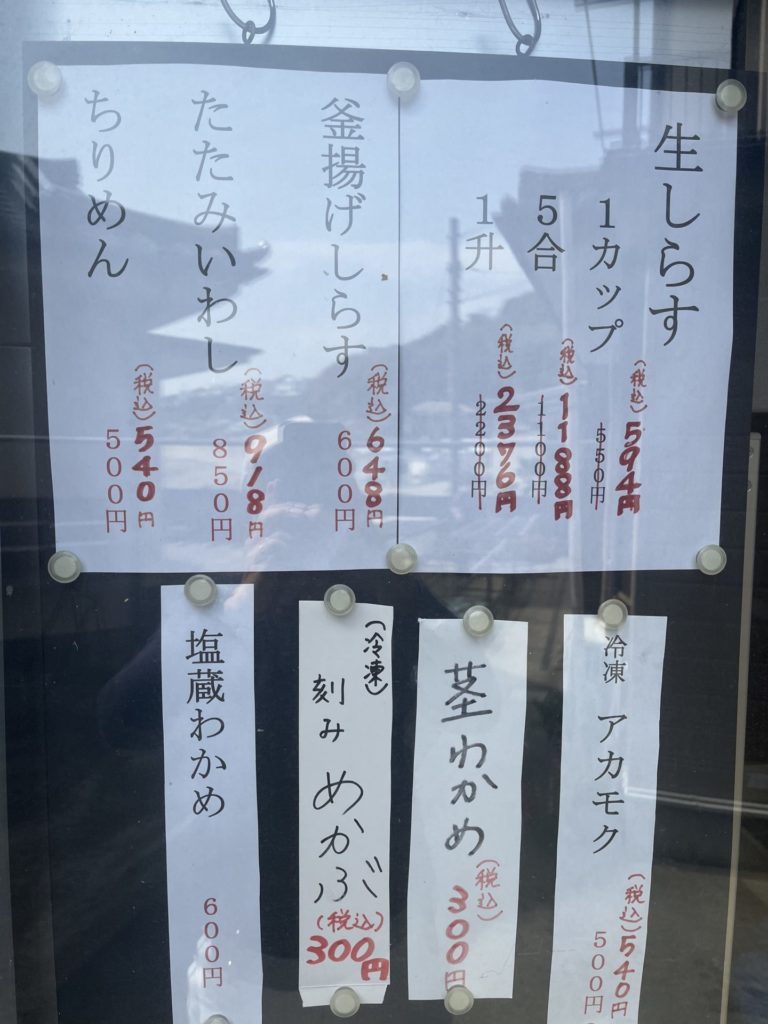 生しらす
1カップ
(税込)594円
550円
5合
(税込)1188円
1100円
1升
(税込)2376円
2200円
釜揚げしらす
(税込)648円
600円
たたみいわし
(税込)918円
850円
ちりめん
(税込)540円
500円
冷凍 アカモク
(税込)540円
500円
茎わかめ
(税込)
300円
(冷凍)
刻み めかぶ
(税込)
300円
塩蔵わかめ
600円